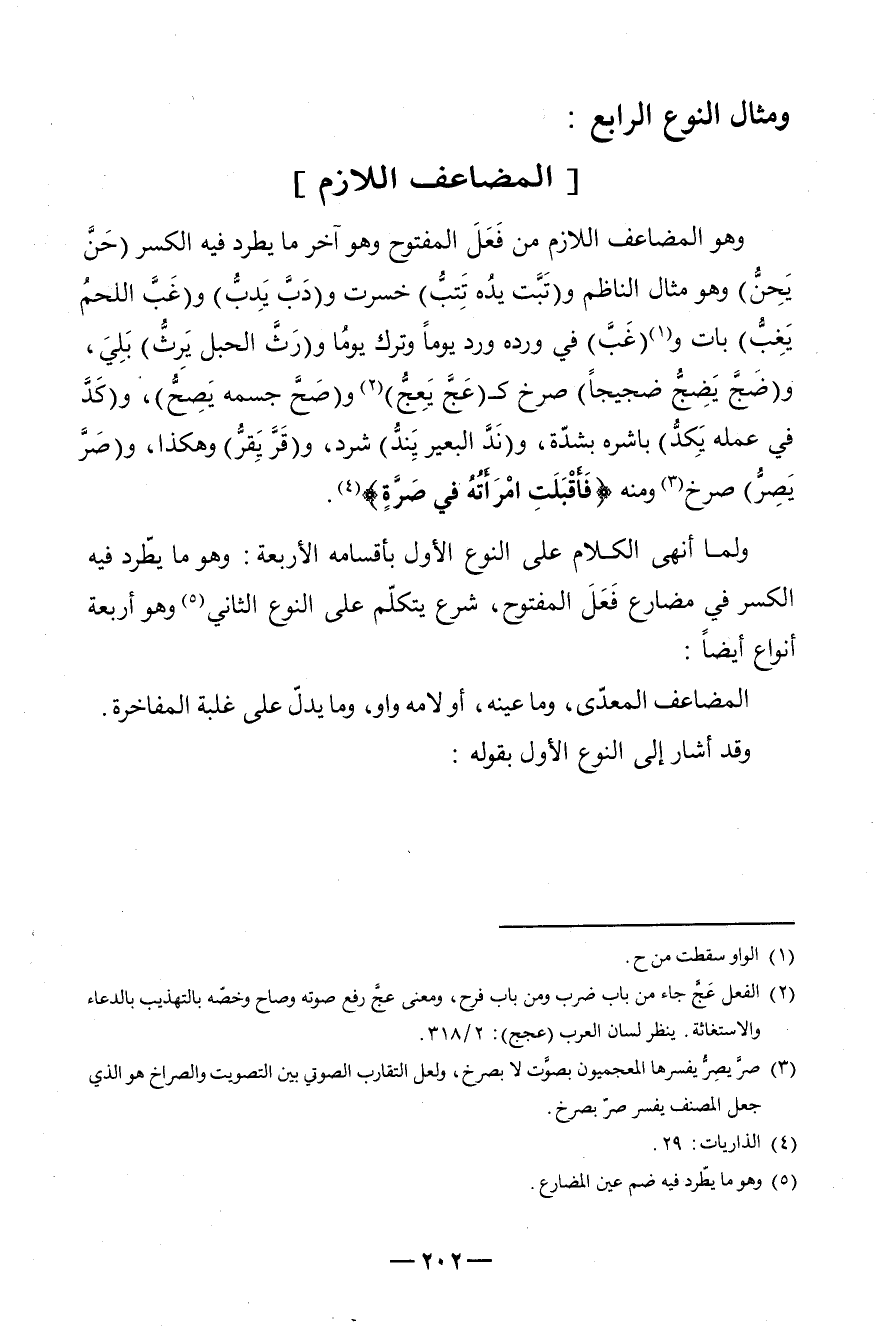 ومثال النوع الرابع :
[ المضاعف اللازم ]
وهو المضاعف اللازم من فَعَلَ المفتوح وهو آخر ما يطرد فيه الكسر (حَنَّ
يَحِنُّ) وهو مثال الناظم و(تَبَّت يدُه تَتِبُّ) خسرت و(دَبَّ يَدِبُّ) و(غَبَّ اللحمُ
يَغِبُّ) بات و(١)(غَبَّ) في ورده ورد يوماً وترك يومُا و(رَثَّ الحبل يَرِثُّ) بَلِيَ،
و(ضَجَّ يَضِجُّ ضجيجاً) صرخ كـ(عَجَّ يَعِجُّ)(٢) و(صَحَّ جسمه يَصِحُّ)، و(كَدَّ
في عمله يَكِدُّ) باشره بشدّة، و(نَدَّ البعير يَنِدُّ) شرد، و(قَرَّ يَقِرُّ) وهكذا، و(صَرَّ
يَصِرُّ) صرخ(٣) ومنه ﴿فَأَقْبَلَتِ امْرَأَتُهُ في صَرَّةٍ﴾(٤).
ولمـا أنهى الكـلام على النوع الأول بأقسامه الأربعة : وهو ما يطّرد فيه
الكسر في مضارع فَعَلَ المفتوح، شرع يتكلّم على النوع الثاني(٥) وهو أربعة
أنواع أيضاً :
المضاعف المعدّى، وما عينه، أو لامه واو، وما يدلّ على غلبة المفاخرة.
وقد أشار إلى النوع الأول بقوله :
(١) الواو سقطت من ح.
(٢) الفعل عَجَّ جاء من باب ضرب ومن باب فرح، ومعنى عجَّ رفع صوته وصاح وخصّه بالتهذيب بالدعاء
والاستغاثة. ينظر لسان العرب (عجج): ٣١٨/٢.
(٣) صرَّ يصِرُّ يفسرها المعجميون بصوَّت لا بصرخ، ولعل التقارب الصوتي بين التصويت والصراخ هو الذي
جعل المصنف يفسر صرّ بصرخ.
(٤) الذاريات: ٢٩.
(٥) وهو ما يطّرد فيه ضم عين المضارع.
— ٢٠٢ —